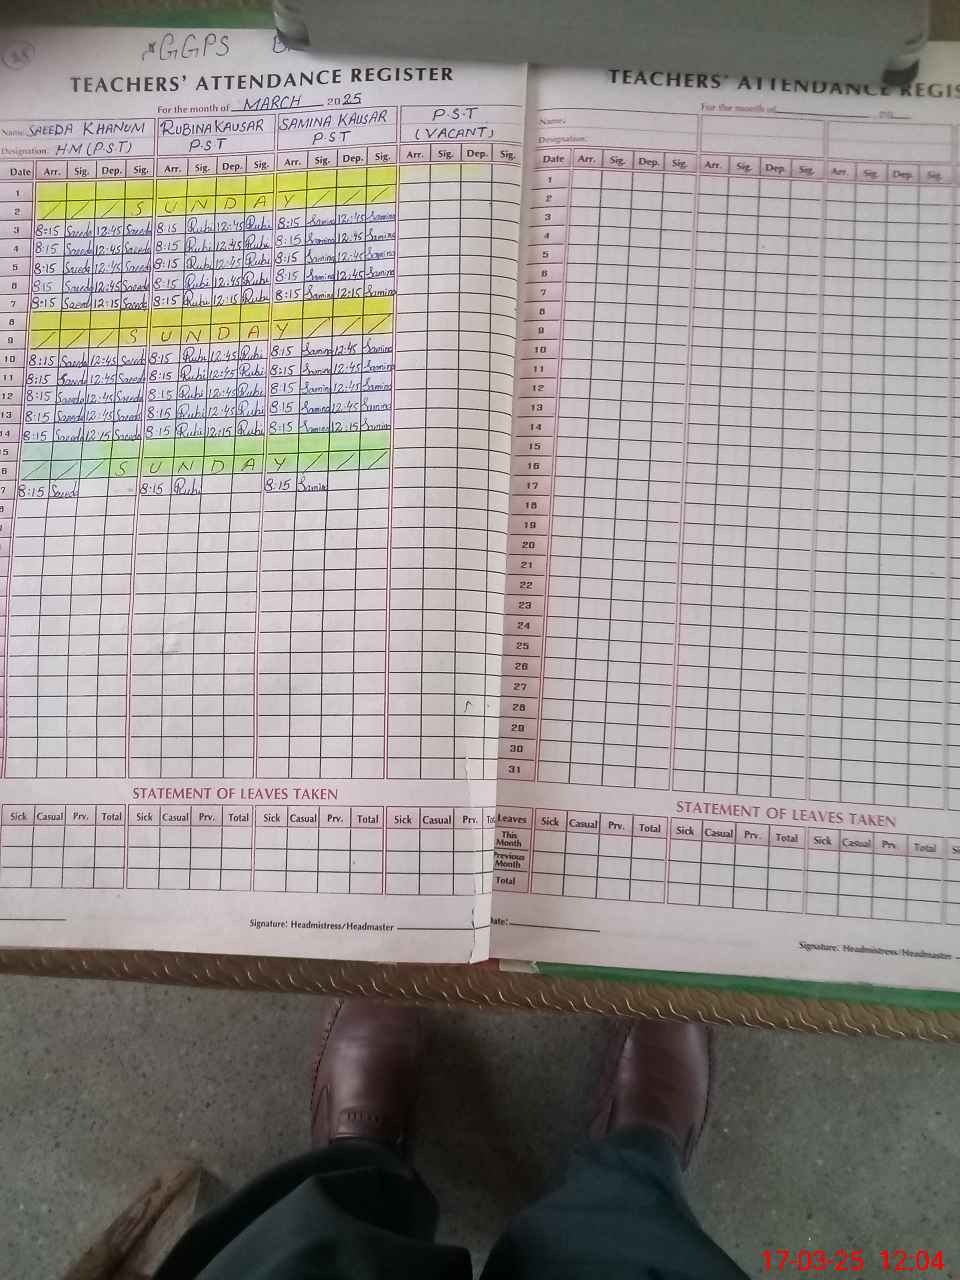 GGPS
TEACHERS' ATTENDANCE REGISTER
For the month of MARCH 2025
Name: SAEEDA KHANUM RUBINA KAUSAR SAMINA KAUSAR P.S.T
Designation: H.M (P.S.T) P.S.T P.S.T (VACANT)
Date Arr. Sig. Dep. Sig. Arr. Sig. Dep. Sig. Arr. Sig. Dep. Sig. Arr. Sig. Dep. Sig.
1
2 / / / S U N D A Y / / /
3 8:15 Saeeda 12:45 Saeeda 8:15 Rubi 12:45 Rubi 8:15 Samina 12:45 Samina
4 8:15 Saeeda 12:45 Saeeda 8:15 Rubi 12:45 Rubi 8:15 Samina 12:45 Samina
5 8:15 Saeeda 12:45 Saeeda 8:15 Rubi 12:45 Rubi 8:15 Samina 12:45 Samina
6 8:15 Saeeda 12:45 Saeeda 8:15 Rubi 12:45 Rubi 8:15 Samina 12:45 Samina
7 8:15 Saeeda 12:15 Saeeda 8:15 Rubi 12:15 Rubi 8:15 Samina 12:15 Samina
8
9 / / / S U N D A Y / / /
10 8:15 Saeeda 12:45 Saeeda 8:15 Rubi 12:45 Rubi 8:15 Samina 12:45 Samina
11 8:15 Saeeda 12:45 Saeeda 8:15 Rubi 12:45 Rubi 8:15 Samina 12:45 Samina
12 8:15 Saeeda 12:45 Saeeda 8:15 Rubi 12:45 Rubi 8:15 Samina 12:45 Samina
13 8:15 Saeeda 12:45 Saeeda 8:15 Rubi 12:45 Rubi 8:15 Samina 12:45 Samina
14 8:15 Saeeda 12:15 Saeeda 8:15 Rubi 12:15 Rubi 8:15 Samina 12:15 Samina
5
6 / / / S U N D A Y / / /
7 8:15 Saeeda 8:15 Rubi 8:15 Samina
STATEMENT OF LEAVES TAKEN
Sick Casual Prv. Total Sick Casual Prv. Total Sick Casual Prv. Total Sick Casual Prv.
Signature: Headmistress/Headmaster
TEACHERS' ATTENDANCE REGIS
For the month of 20
Name:
Designation:
Date Arr. Sig. Dep. Sig. Arr. Sig. Dep. Sig. Arr. Sig. Dep. Sig.
1
2
3
4
5
6
7
8
9
10
11
12
13
14
15
16
17
18
19
20
21
22
23
24
25
26
27
28
29
30
31
STATEMENT OF LEAVES TAKEN
Leaves Sick Casual Prv. Total Sick Casual Prv. Total Sick Casual Prv. Total
This Month
Previous Month
Total
Date:
Signature: Headmistress/Headmaster
17-03-25 12:04